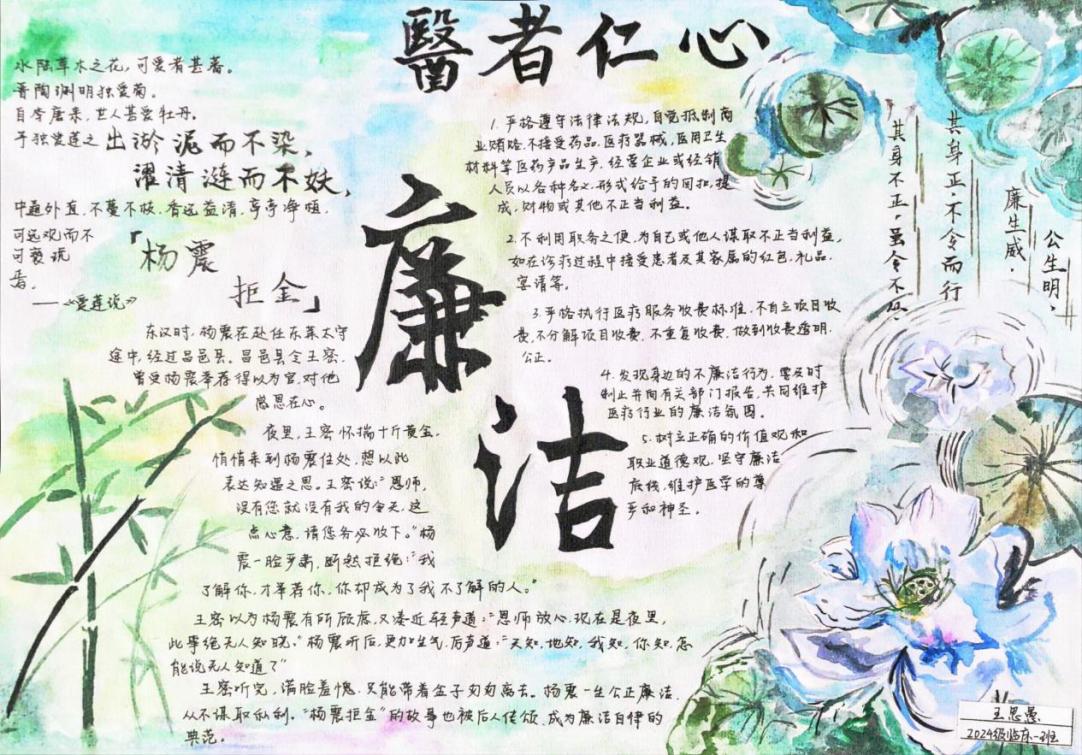 醫者仁心
水陆草木之花,可爱者甚蕃。
晋陶渊明独爱菊。
自李唐来,世人甚爱牡丹。
予独爱莲之出淤泥而不染,
濯清涟而不妖,
中通外直,不蔓不枝,香远益清,亭亭净植,
可远观而不
可亵玩
焉。
——《爱莲说》
「杨震
拒金」
东汉时,杨震在赴任东莱太守
途中,经过昌邑县。昌邑县令王密,
曾受杨震举荐得以为官,对他
感恩在心。
夜里,王密怀揣十斤黄金,
悄悄来到杨震住处,想以此
表达知遇之恩。王密说:“恩师,
没有您就没有我的今天,这
点心意,请您务必收下。”杨
震一脸严肃,断然拒绝:“我
了解你,才举荐你,你却成为了我不了解的人。”
王密以为杨震有所顾虑,又凑近轻声道:“恩师放心,现在是夜里,
此事绝无人知晓。”杨震听后,更加生气,厉声道:“天知,地知,我知,你知,怎
能说无人知道了”
王密听完,满脸羞愧,只能带着金子匆匆离去。杨震一生公正廉洁,
从不谋取私利。“杨震拒金”的故事也被后人传颂,成为廉洁自律的
典范。
廉
洁
1.严格遵守法律法规,自觉抵制商
业贿赂,不接受药品,医疗器械,医用卫生
材料等医药产品生产,经营企业或经销
人员以各种名义,形式给予的回扣,提
成,财物或其他不正当利益。
2.不利用职务之便,为自己或他人谋取不正当利益,
如在诊疗过程中接受患者及其家属的红包,礼品,
宴请等。
3.严格执行医疗服务收费标准,不自立项目收
费,不分解项目收费,不重复收费,做到收费透明,
公正。
4.发现身边的不廉洁行为,要及时
制止并向有关部门报告,共同维护
医疗行业的廉洁氛围。
5.树立正确的价值观和
职业道德观,坚守廉洁
底线,维护医学的尊
严和神圣。
公生明,
廉生威,
其身正,不令而行
其身不正,虽令不从
王思愚
2024级临床一班